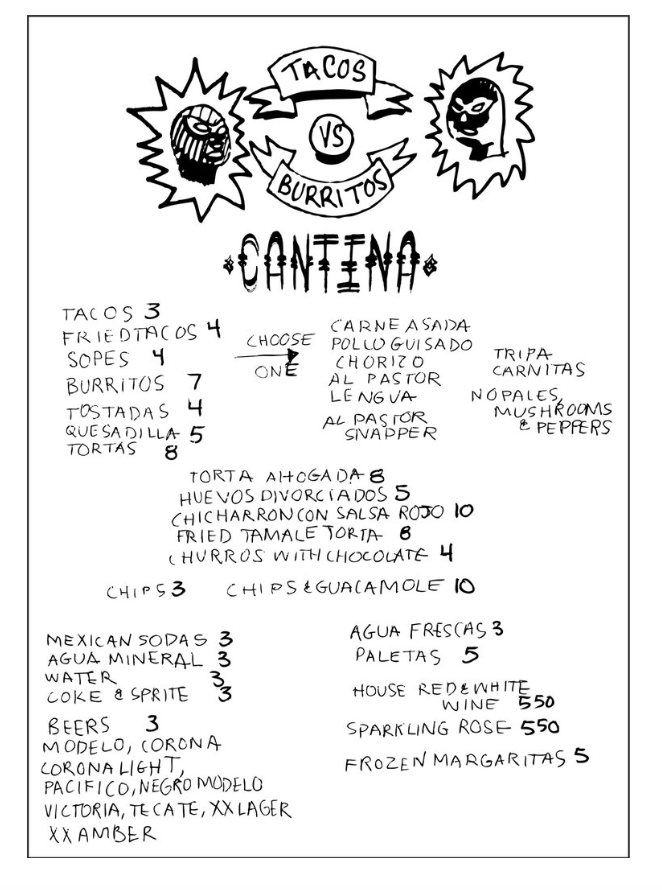 TACOS
VS
BURRITOS
CANTINA
TACOS 3
FRIED TACOS 4
SOPES 4
BURRITOS 7
TOSTADAS 4
QUESADILLA 5
TORTAS 8
CHOOSE
ONE
CARNE ASADA
POLLO GUISADO
CHORIZO
AL PASTOR
LENGUA
AL PASTOR
SNAPPER
TRIPA
CARNITAS
NOPALES,
MUSHROOMS
& PEPPERS
TORTA AHOGADA 8
HUEVOS DIVORCIADOS 5
CHICHARRON CON SALSA ROJO 10
FRIED TAMALE TORTA 8
CHURROS WITH CHOCOLATE 4
CHIPS 3 CHIPS & GUACAMOLE 10
MEXICAN SODAS 3
AGUA MINERAL 3
WATER 3
COKE & SPRITE 3
BEERS 3
MODELO, CORONA
CORONA LIGHT,
PACIFICO, NEGRO MODELO
VICTORIA, TECATE, XX LAGER
XX AMBER
AGUA FRESCAS 3
PALETAS 5
HOUSE RED & WHITE
WINE 550
SPARKLING ROSE 550
FROZEN MARGARITAS 5